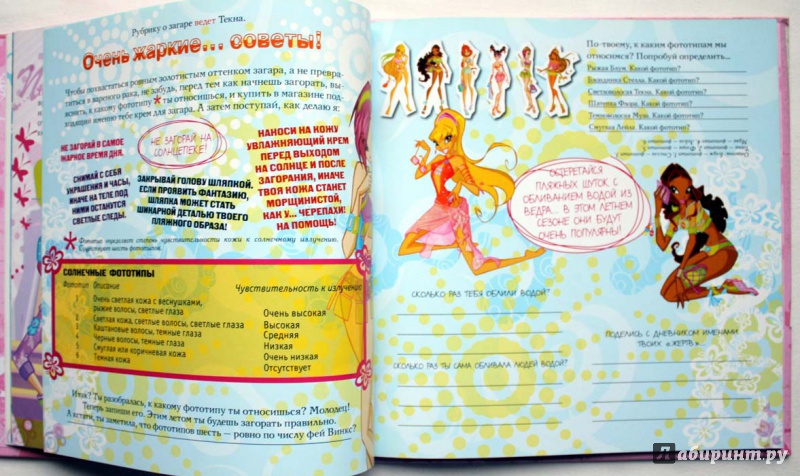 Рубрику о загаре ведет Текна.
Очень жаркие... советы!
Чтобы похвастаться ровным золотистым оттенком загара, а не превра-
титься в вареного рака, не забудь, перед тем как начнешь загорать, вы-
яснить, к какому фототипу * ты относишься, и купить в магазине под-
ходящий именно тебе крем для загара. А затем поступай, как делаю я:
НЕ ЗАГОРАЙ В САМОЕ
ЖАРКОЕ ВРЕМЯ ДНЯ.
НЕ ЗАГОРАЙ НА
СОЛНЦЕПЕКЕ!
НАНОСИ НА КОЖУ
УВЛАЖНЯЮЩИЙ КРЕМ
ПЕРЕД ВЫХОДОМ
НА СОЛНЦЕ И ПОСЛЕ
ЗАГОРАНИЯ, ИНАЧЕ
ТВОЯ КОЖА СТАНЕТ
МОРЩИНИСТОЙ,
КАК У... ЧЕРЕПАХИ!
НА ПОМОЩЬ!
СНИМАЙ С СЕБЯ
УКРАШЕНИЯ И ЧАСЫ,
ИНАЧЕ НА ТЕЛЕ ПОД
НИМИ ОСТАНУТСЯ
СВЕТЛЫЕ СЛЕДЫ.
ЗАКРЫВАЙ ГОЛОВУ ШЛЯПКОЙ.
ЕСЛИ ПРОЯВИТЬ ФАНТАЗИЮ,
ШЛЯПКА МОЖЕТ СТАТЬ
ШИКАРНОЙ ДЕТАЛЬЮ ТВОЕГО
ПЛЯЖНОГО ОБРАЗА!
* Фототип определяет степень чувствительности кожи к солнечному излучению.
Существует шесть фототипов.
СОЛНЕЧНЫЕ ФОТОТИПЫ
Фототип Описание Чувствительность к излучению
1 Очень светлая кожа с веснушками,
рыжие волосы, светлые глаза Очень высокая
2 Светлая кожа, светлые волосы, светлые глаза Высокая
3 Каштановые волосы, темные глаза Средняя
4 Черные волосы, темные глаза Низкая
5 Смуглая или коричневая кожа Очень низкая
6 Темная кожа Отсутствует
Итак? Ты разобралась, к какому фототипу ты относишься? Молодец!
Теперь запиши его. Этим летом ты будешь загорать правильно.
А кстати, ты заметила, что фототипов шесть — ровно по числу фей Винкс?
По-твоему, к каким фототипам мы
относимся? Попробуй определить...
Рыжая Блум. Какой фототип?
Блондинка Стелла. Какой фототип?
Светловолосая Текна. Какой фототип?
Шатенка Флора. Какой фототип?
Темноволосая Муза. Какой фототип?
Смуглая Лейла. Какой фототип?
ОСТЕРЕГАЙСЯ
ПЛЯЖНЫХ ШУТОК С
ОБЛИВАНИЕМ ВОДОЙ ИЗ
ВЕДРА... В ЭТОМ ЛЕТНЕМ
СЕЗОНЕ ОНИ БУДУТ
ОЧЕНЬ ПОПУЛЯРНЫ!
СКОЛЬКО РАЗ ТЕБЯ ОБЛИЛИ ВОДОЙ?
СКОЛЬКО РАЗ ТЫ САМА ОБЛИВАЛА ЛЮДЕЙ ВОДОЙ?
ПОДЕЛИСЬ С ДНЕВНИКОМ ИМЕНАМИ
ТВОИХ «ЖЕРТВ»
Лабиринт.ру